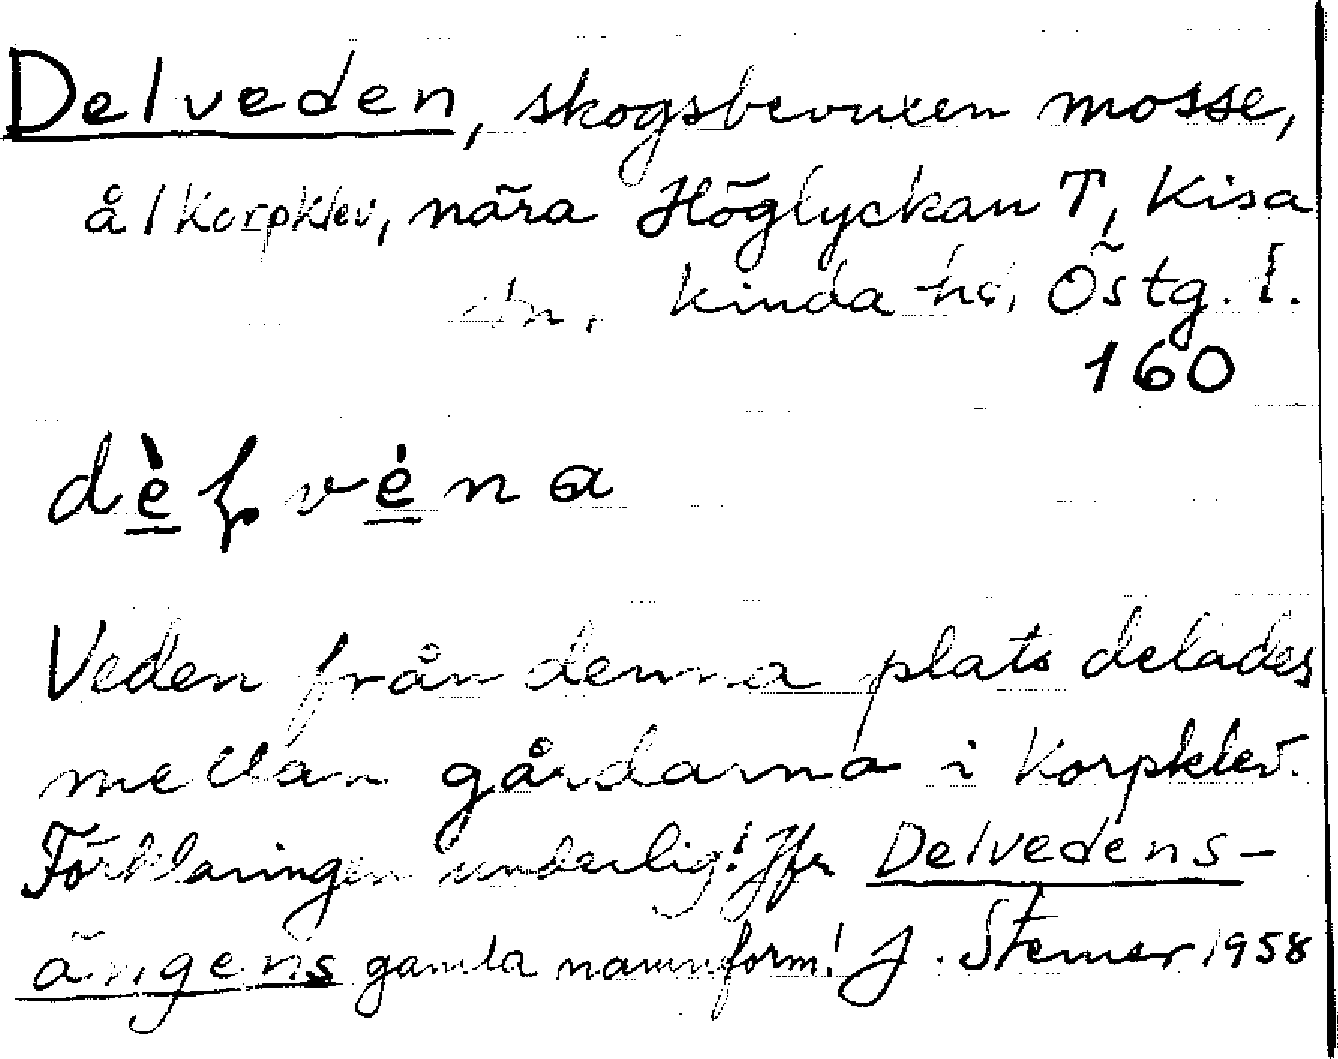 Delveden, skogsbevuxen mosse,
å/Korpklev, nära Höglyckan T, Kisa
sn, Kinda hd, Östg. l.
160
dèlvéna
Veden från denna plats delades
mellan gårdarna i Korpklev.
Förklaringen underlig! Jfr Delvedens-
ängens gamla namnform! J. Stemer 1958